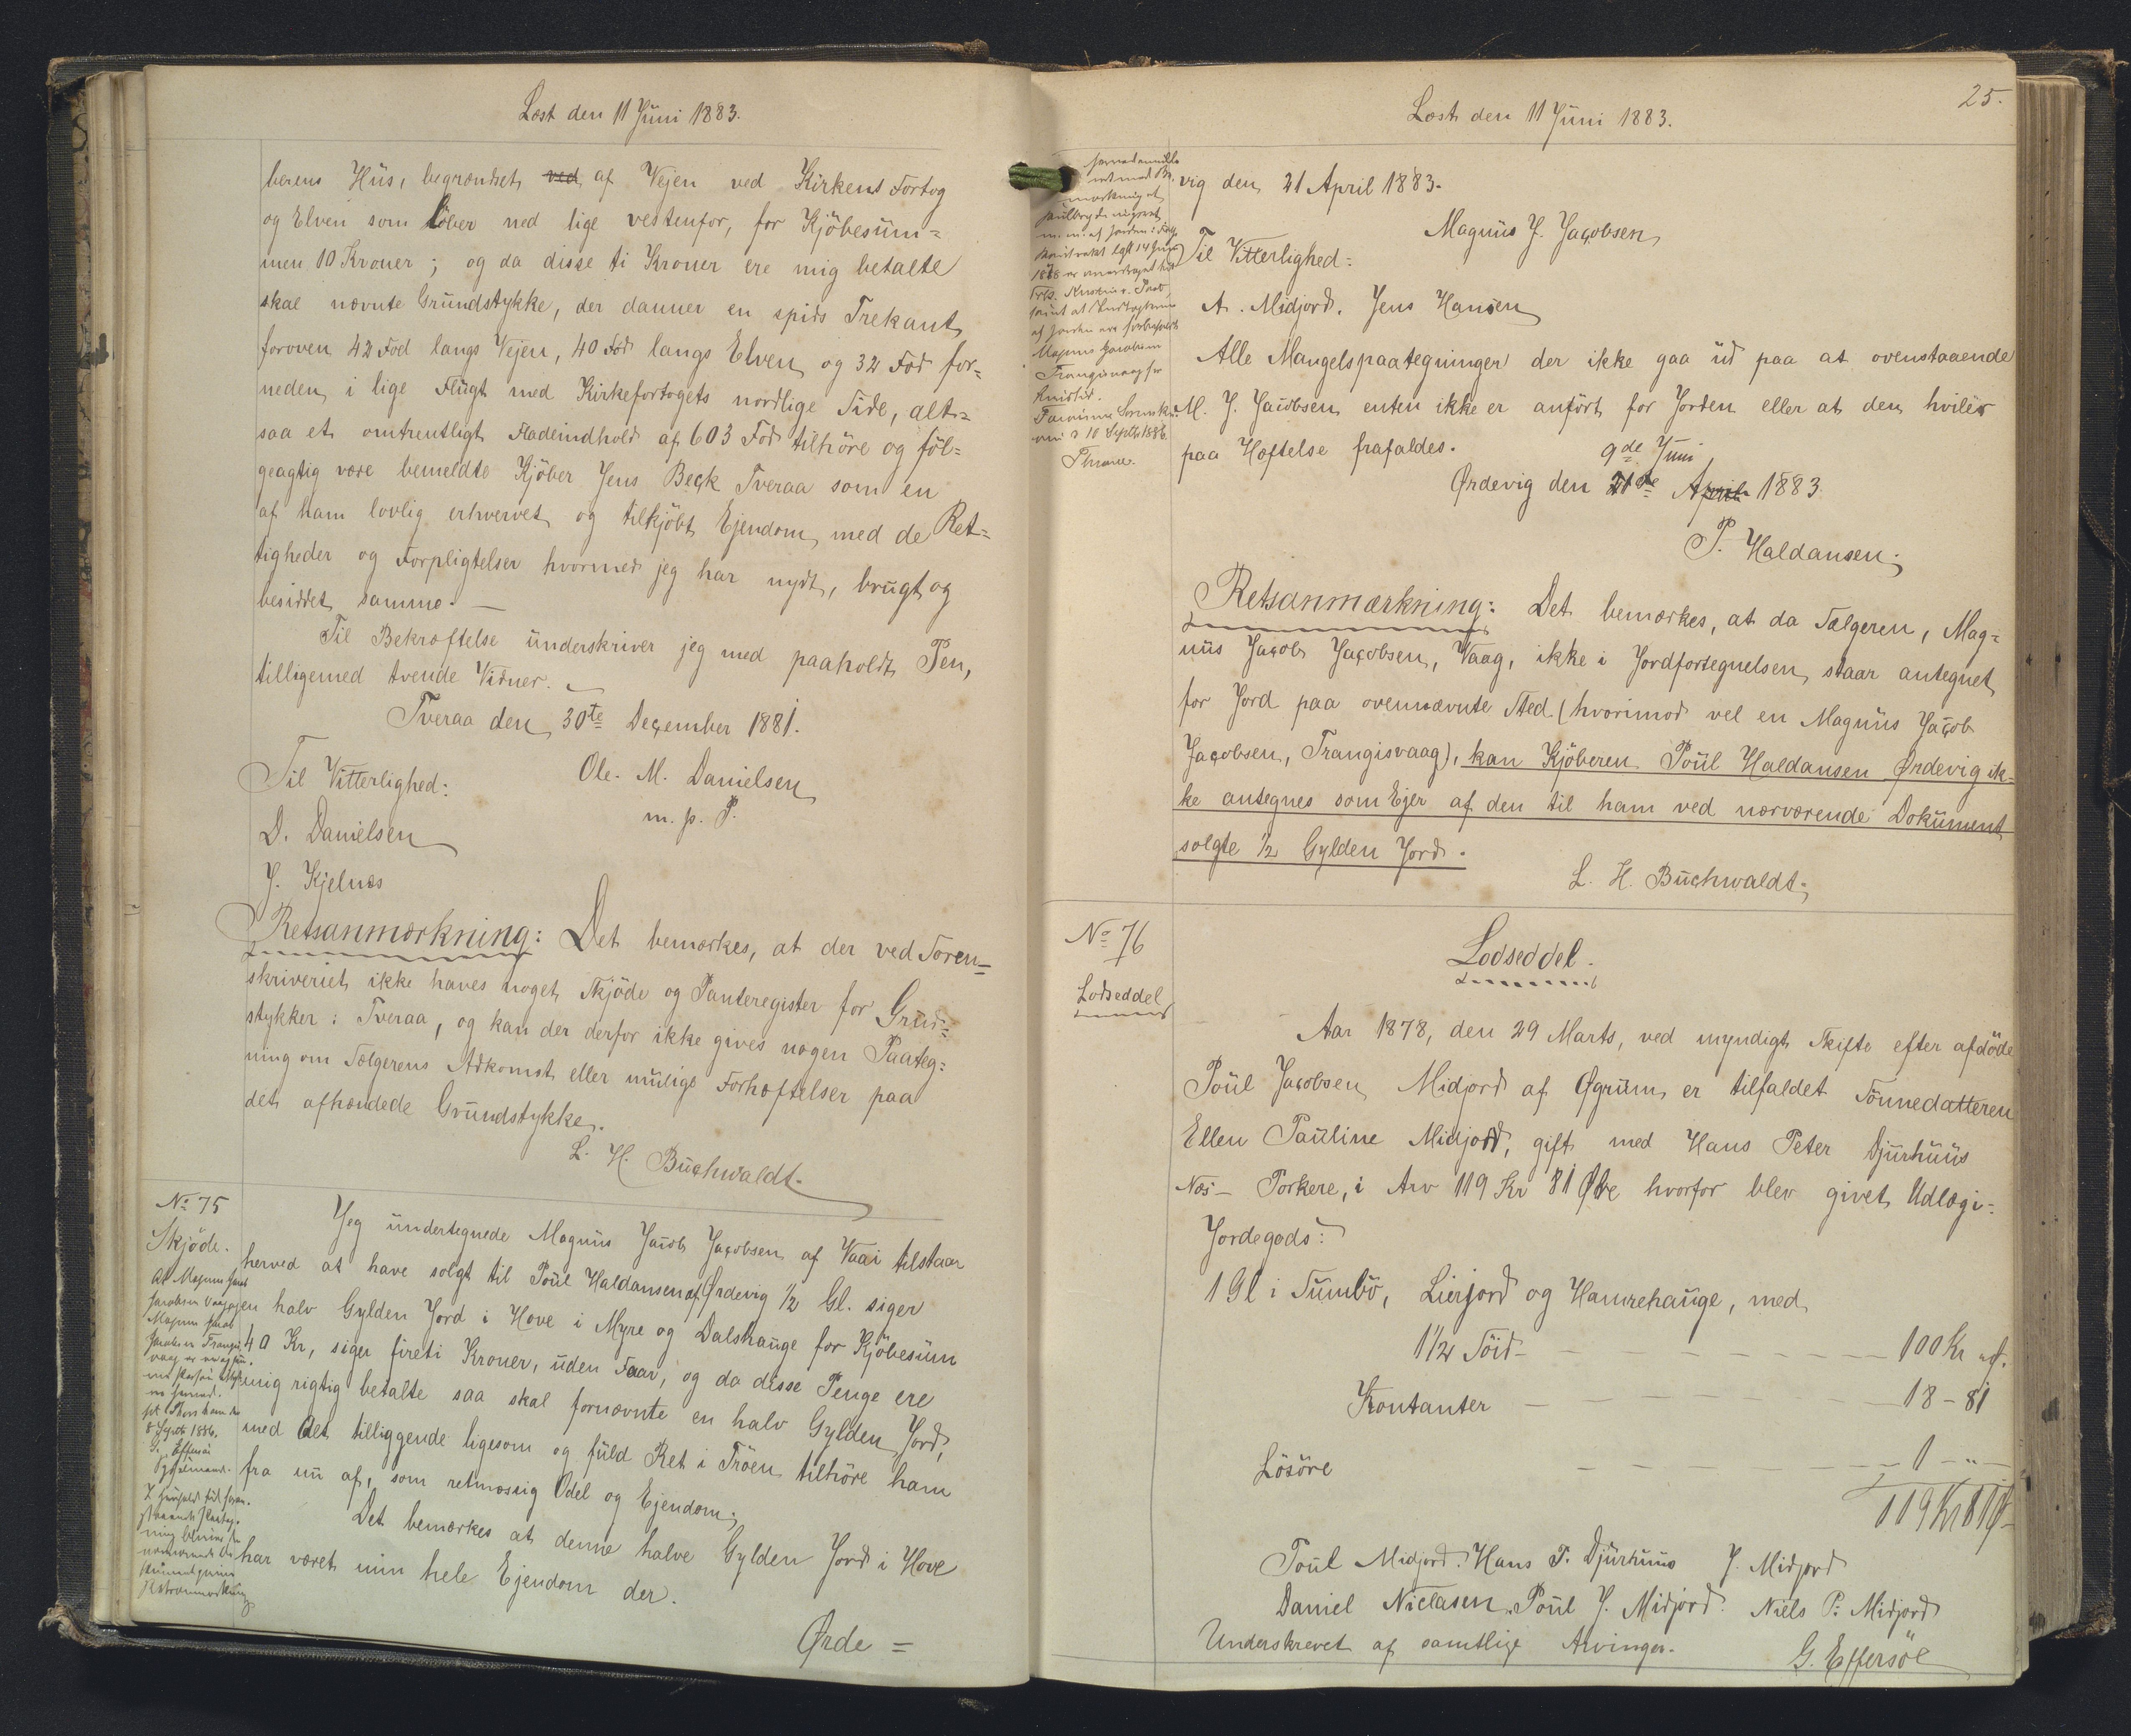 Læst den 11 Juni 1883.
berens Hüs, begrændset ved af Vejen ved Kirkens Fortog
og Elven som löber ned lige vestenfor, for Kjöbesüm=
men 10 Kroner; og da disse ti Kroner ere mig betalte
skal nævnte Grundstykke, der danner en spids Trekant
foroven 42 Fod langs Vejen, 40 Fod langs Elven og 32 Fod for=
neden i lige Flügt med Kirkefortogets nordlige Side, alt=
saa et omtrentligt Fladeindhold af 603 Fod tilhöre og föl=
geagtig være bemeldte Kjöber Jens Beck Tveraa som en
af ham lovlig erhvervet og tilkjöbt Ejendom med de Ret=
tigheder og Forpligtelser hvormed jeg har nydt, brügt og
besiddet samme. —
Til Bekræftelse ünderskriver jeg med paaholdt Pen,
tilligemed tvende Vidner. —
Tveraa den 30te December 1881.
Til Vitterlighed: Ole. M. Danielsen
D. Danielsen m. p. P.
J. Kjelnæs
Retsanmærkning: Det bemærkes, at der ved Soren=
skriveriet ikke haves noget Skjöde og Panteregister for Grün=
stykker i Tveraa, og kan der derfor ikke gives nogen Paateg=
ning om Sælgerens Adkomst eller mülige Forhæftelser paa
det afhændede Gründstykke.
L. H. Büchwaldt.
No 75
Skjöde.
Jeg ündertegnede Magnüs Jacob Jacobsen af Vaai tilstaar
herved at have solgt til Poül Haldansen af Ørdevig 1/2 Gl. siger
en halv Gylden Jord i Hove i Myre og Dalshaüge for Kjöbesüm
40 Kr, siger fireti Kroner, üden Faar, og da disse Penge ere
mig rigtig betalte saa skal fornævnte en halv Gylden Jord,
med det tilliggende ligesom og füld Ret i Tröen tilhöre ham
fra nü af, som retmæssig Odel og Ejendom;
Det bemærkes at denne halve Gylden Jord i Hove
har været min hele Ejendom der.
Ørde =
At Magnus Jacob
Jacobsen Vaag og
Magnus Jacob
Jacobsen Trangis=
vaag er
8 Septb 1886.
Sysselmand.
Retsanmærkning
25.
Læst den 11 Juni 1883.
vig den 21 April 1883.
Magnüs J. Jacobsen
Til Vitterlighed:
A. Midjord. Jens Hansen
Alle Mangelspaategninger der ikke gaa üd paa at ovenstaaende
M. J. Jacobsen enten ikke er anfört for Jorden eller at den hviler
paa Hæftelse frafaldes.
9de Juni
Ørdevig den 21de April 1883
P. Haldansen.
Retsanmærkning: Det bemærkes, at da Sælgeren, Mag=
nüs Jacob Jacobsen, Vaag, ikke i Jordfortegnelsen staar antegnet
for Jord paa ovennævnte Sted (hvorimod vel en Magnüs Jacob
Jacobsen, Trangisvaag), kan Kjöberen Poül Haldansen Ørdevig ik=
ke antegnes som Ejer af den til ham ved nærværende Dokument
solgte 1/2 Gylden Jord.
L. H. Büchwaldt.
af Jorden
Magnus Jacobsen
Trangisvaag
10 Septb 1886.
No 76
Lodseddel
Lodseddel.
Aar 1878, den 29 Marts, ved myndigt Skifte efter afdöde
Poül Jacobsen Midjord af Øgrüm er tilfaldet Sönnedatteren
Ellen Paüline Midjord, gift med Hans Peter Djürhüüs
Næs - Porkere, i Arv 119 Kr 81 Øre hvorfor blev givet Udlæg i=
Jordegods:
1 Gl i Sümbö, Lierjord og Hamrehaüge, med
1 1/2 Söid — 100 Kr
Kontanter — 18 - 81
Lösöre — 1 - " -
119 Kr 81 Ø
Poül Midjord. Hans P. Djürhuus J. Midjord
Daniel Niclasen. Poül J. Midjord. Niels P. Midjord
Underskrevet af samtlige Arvinger.
G. Effersöe